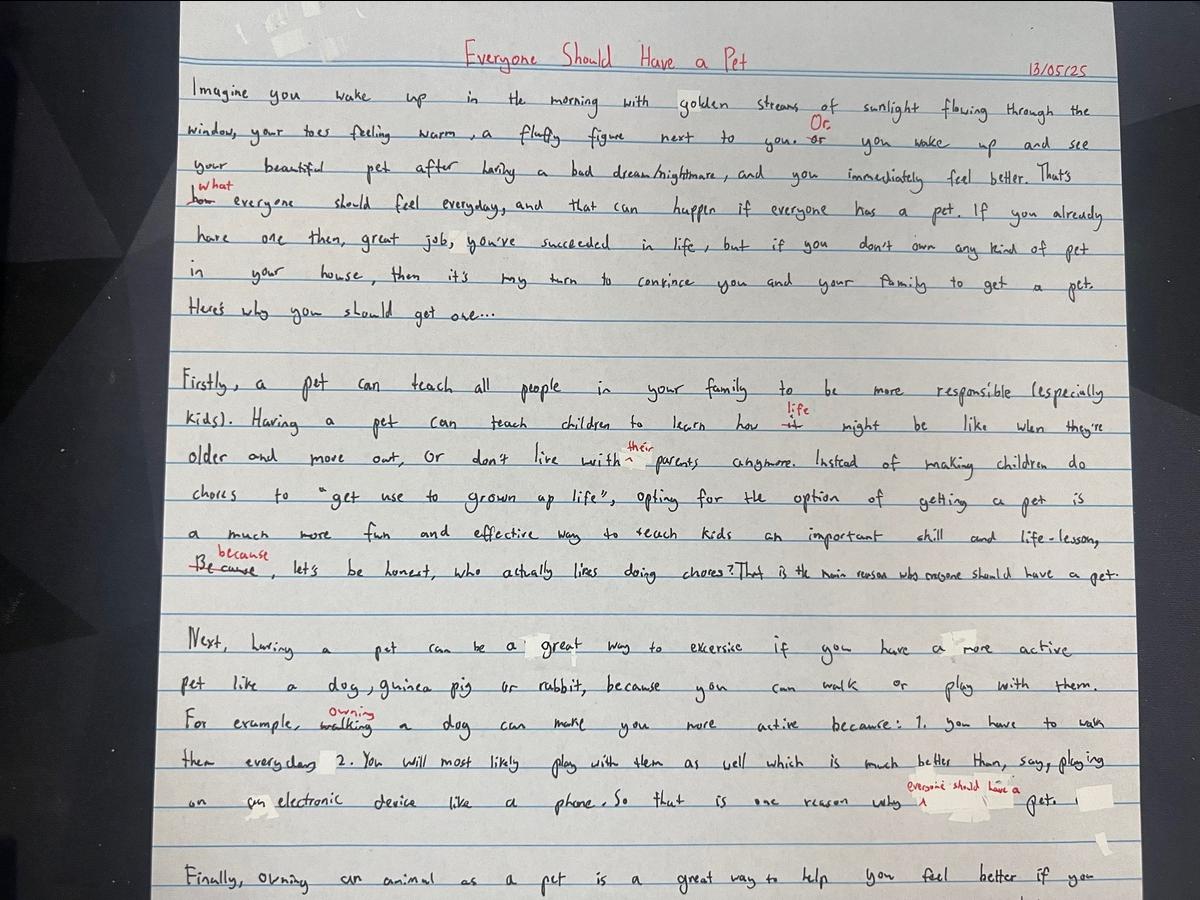 Everyone Should Have a Pet
13/05/25
Imagine you wake up in the morning with golden streams of sunlight flowing through the
window, your toes feeling warm, a fluffy figure next to you. or Or you wake up and see
your beautiful pet after having a bad dream/nightmare, and you immediately feel better. That's
how what everyone should feel everyday, and that can happen if everyone has a pet. If you already
have one then, great job, you've succeeded in life, but if you don't own any kind of pet
in your house, then it's my turn to convince you and your family to get a pet.
Here's why you should get one...
Firstly, a pet can teach all people in your family to be more responsible (especially
kids). Having a pet can teach children to learn how it life might be like when they're
older and move out, or don't live with their parents anymore. Instead of making children do
chores to "get use to grown up life", opting for the option of getting a pet is
a much more fun and effective way to teach kids an important skill and life-lesson,
Because because, let's be honest, who actually likes doing chores? That is the main reason why everyone should have a pet.
Next, having a pet can be a great way to excersise if you have a more active
pet like a dog, guinea pig or rabbit, because you can walk or play with them.
For example, walking owning a dog can make you more active because: 1. you have to walk
them everyday 2. You will most likely play with them as well which is much better than, say, playing
on an electronic device like a phone. So that is one reason why everyone should have a pet.
Finally, owning an animal as a pet is a great way to help you feel better if you